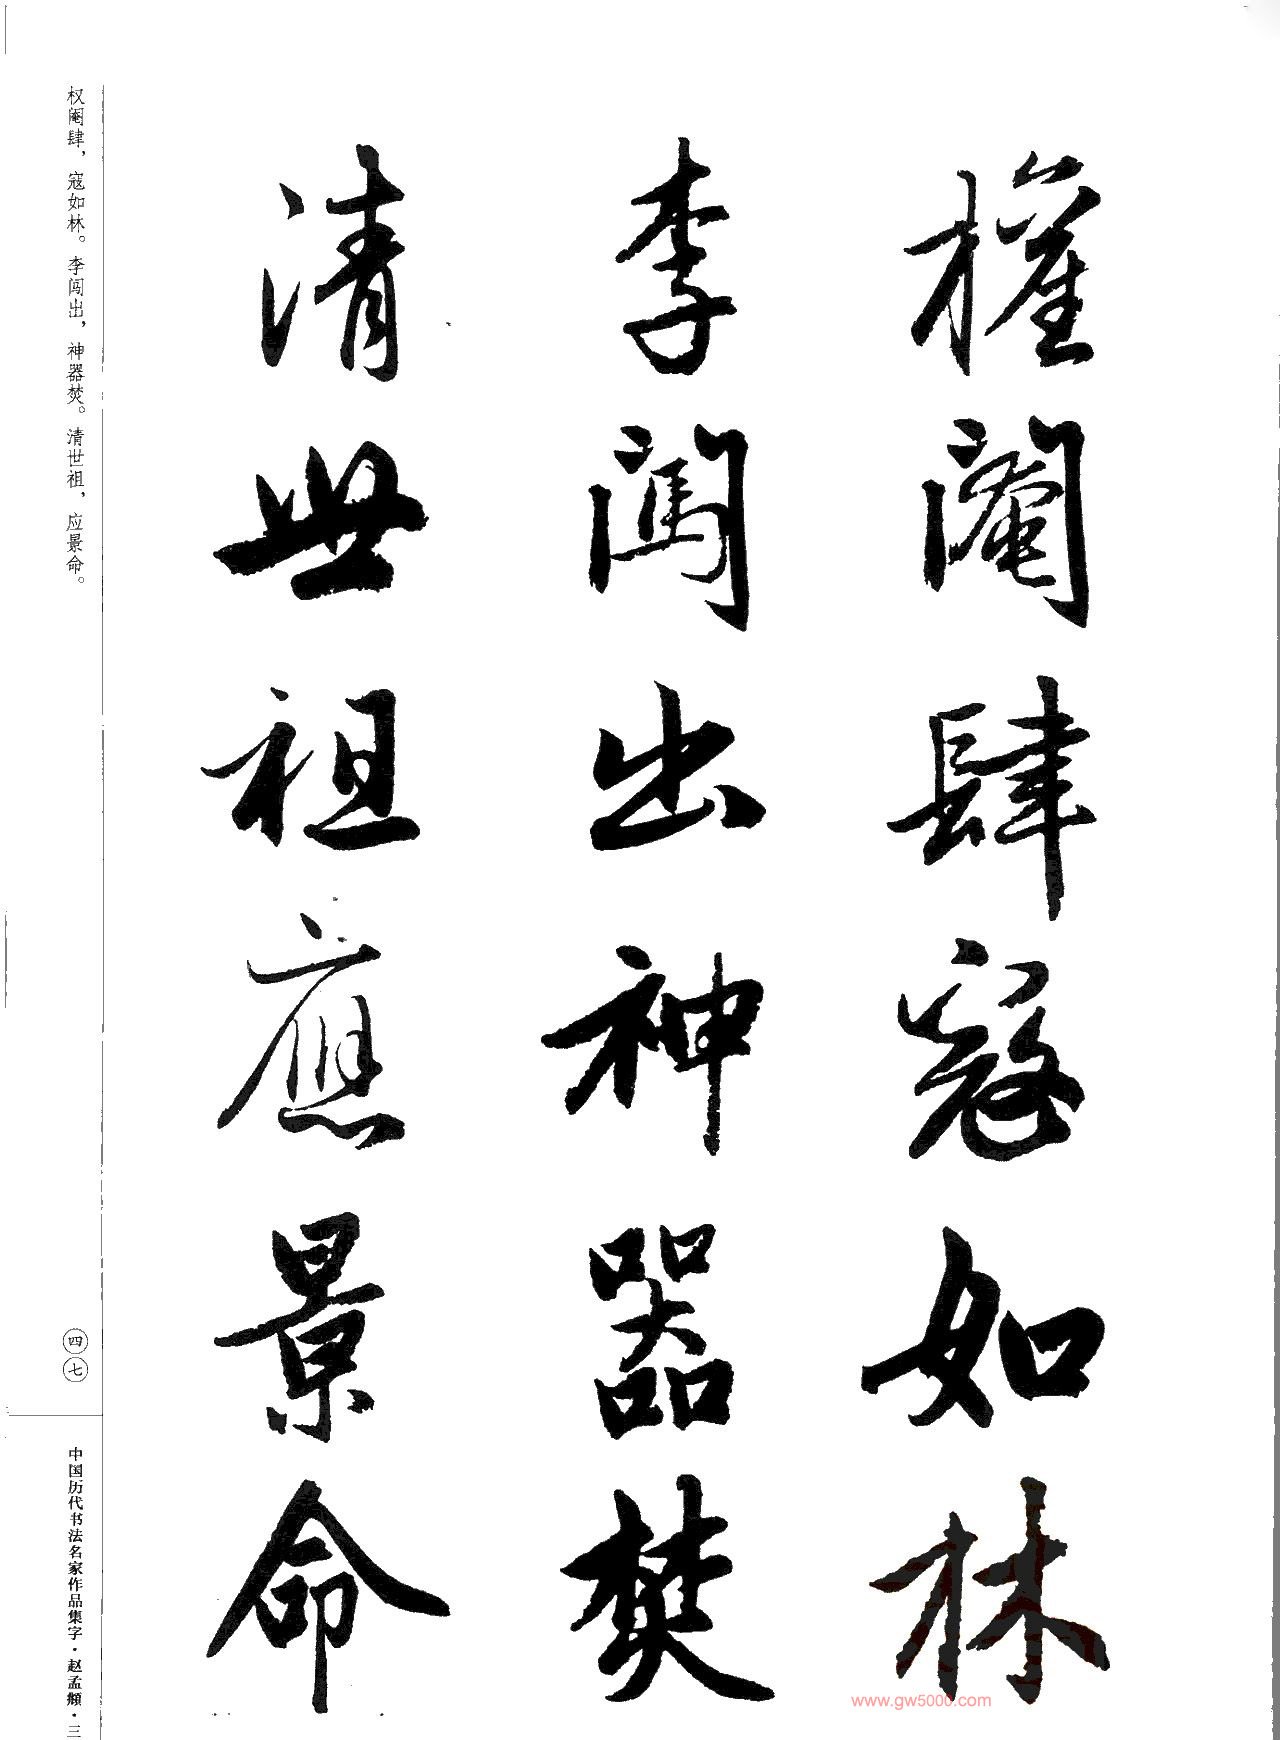 權閹肆寇如林
李闖出神器焚
清世祖應景命
权阉肆，寇如林。李闯出，神器焚。清世祖，应景命。
四七
中国历代书法名家作品集字·赵孟頫·三
www.gw5000.com